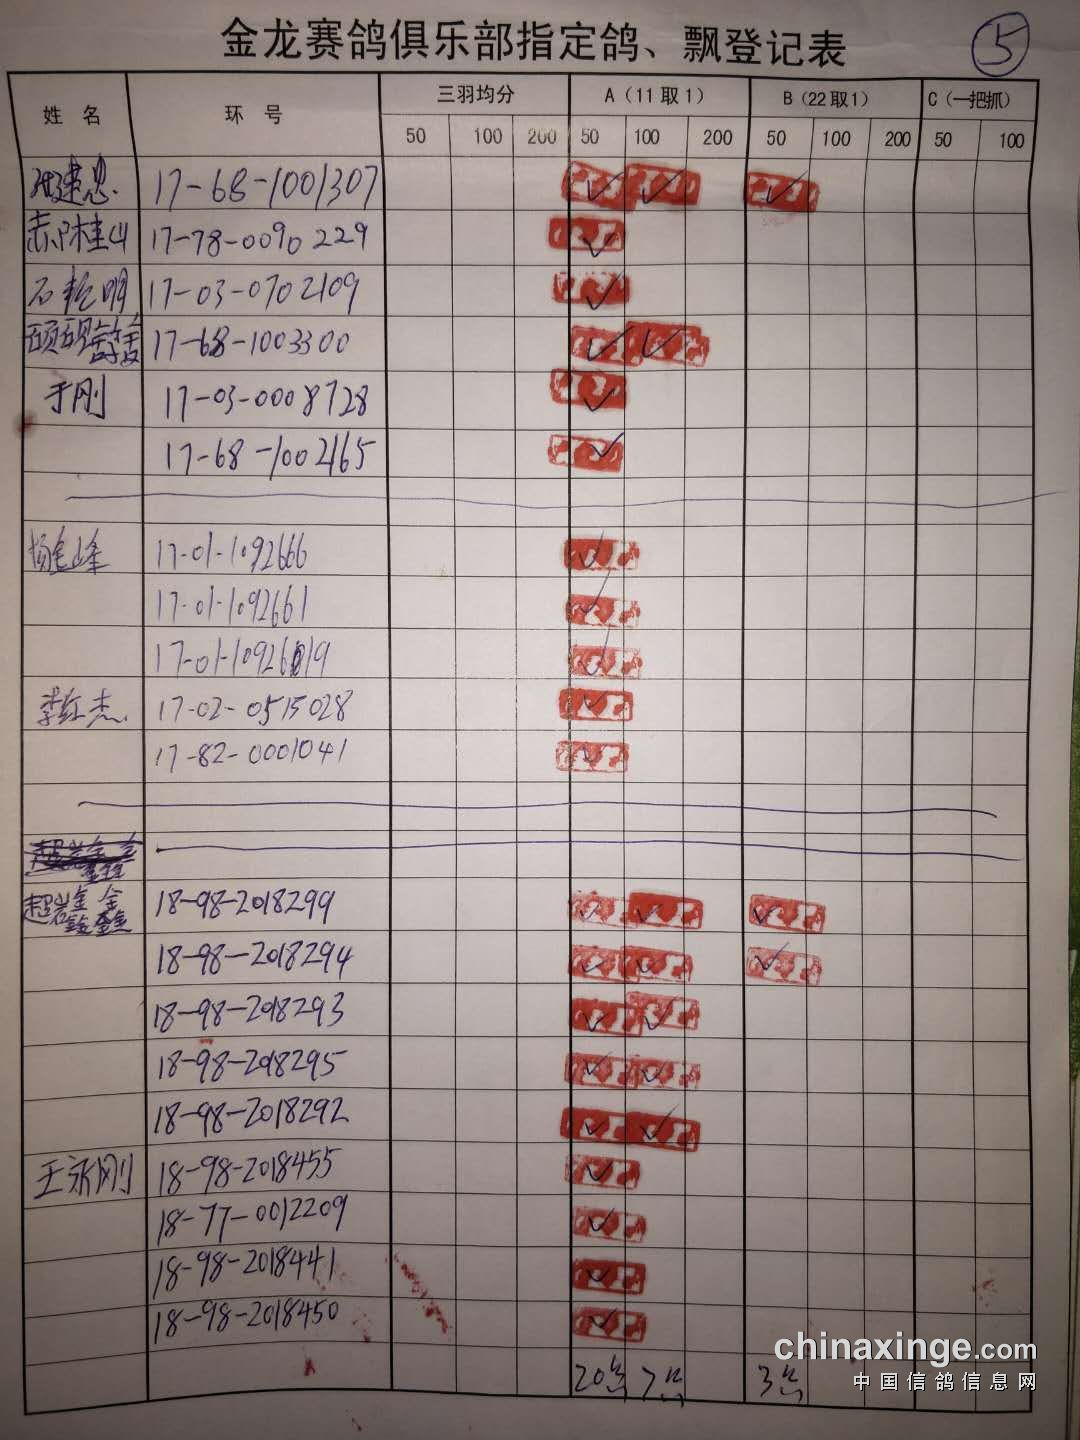 金龙赛鸽俱乐部指定鸽、飘登记表
5
姓名 环号 三羽均分 A(11取1) B(22取1) C(一把抓)
50 100 200 50 100 200 50 100 200 50 100
建忠 17-68-1001307 ✓ ✓ ✓
桂山 17-78-0090229 ✓
石 明 17-03-0702109 ✓
17-68-1003300 ✓ ✓
于刚 17-03-0008728 ✓
17-68-1002165 ✓
杨金峰 17-01-1092666 ✓
17-01-1092661 ✓
17-01-1092619 ✓
李红杰 17-02-0515028 ✓
17-82-0001041 ✓
超岩鑫鑫 18-98-2018299 ✓ ✓ ✓
18-98-2018294 ✓ ✓ ✓
18-98-2018293 ✓ ✓
18-98-2018295 ✓ ✓
18-98-2018292 ✓ ✓
王永刚 18-98-2018455 ✓
18-77-0012209 ✓
18-98-2018441 ✓
18-98-2018450 ✓
20 7 3
chinaxinge.com
中国信鸽信息网